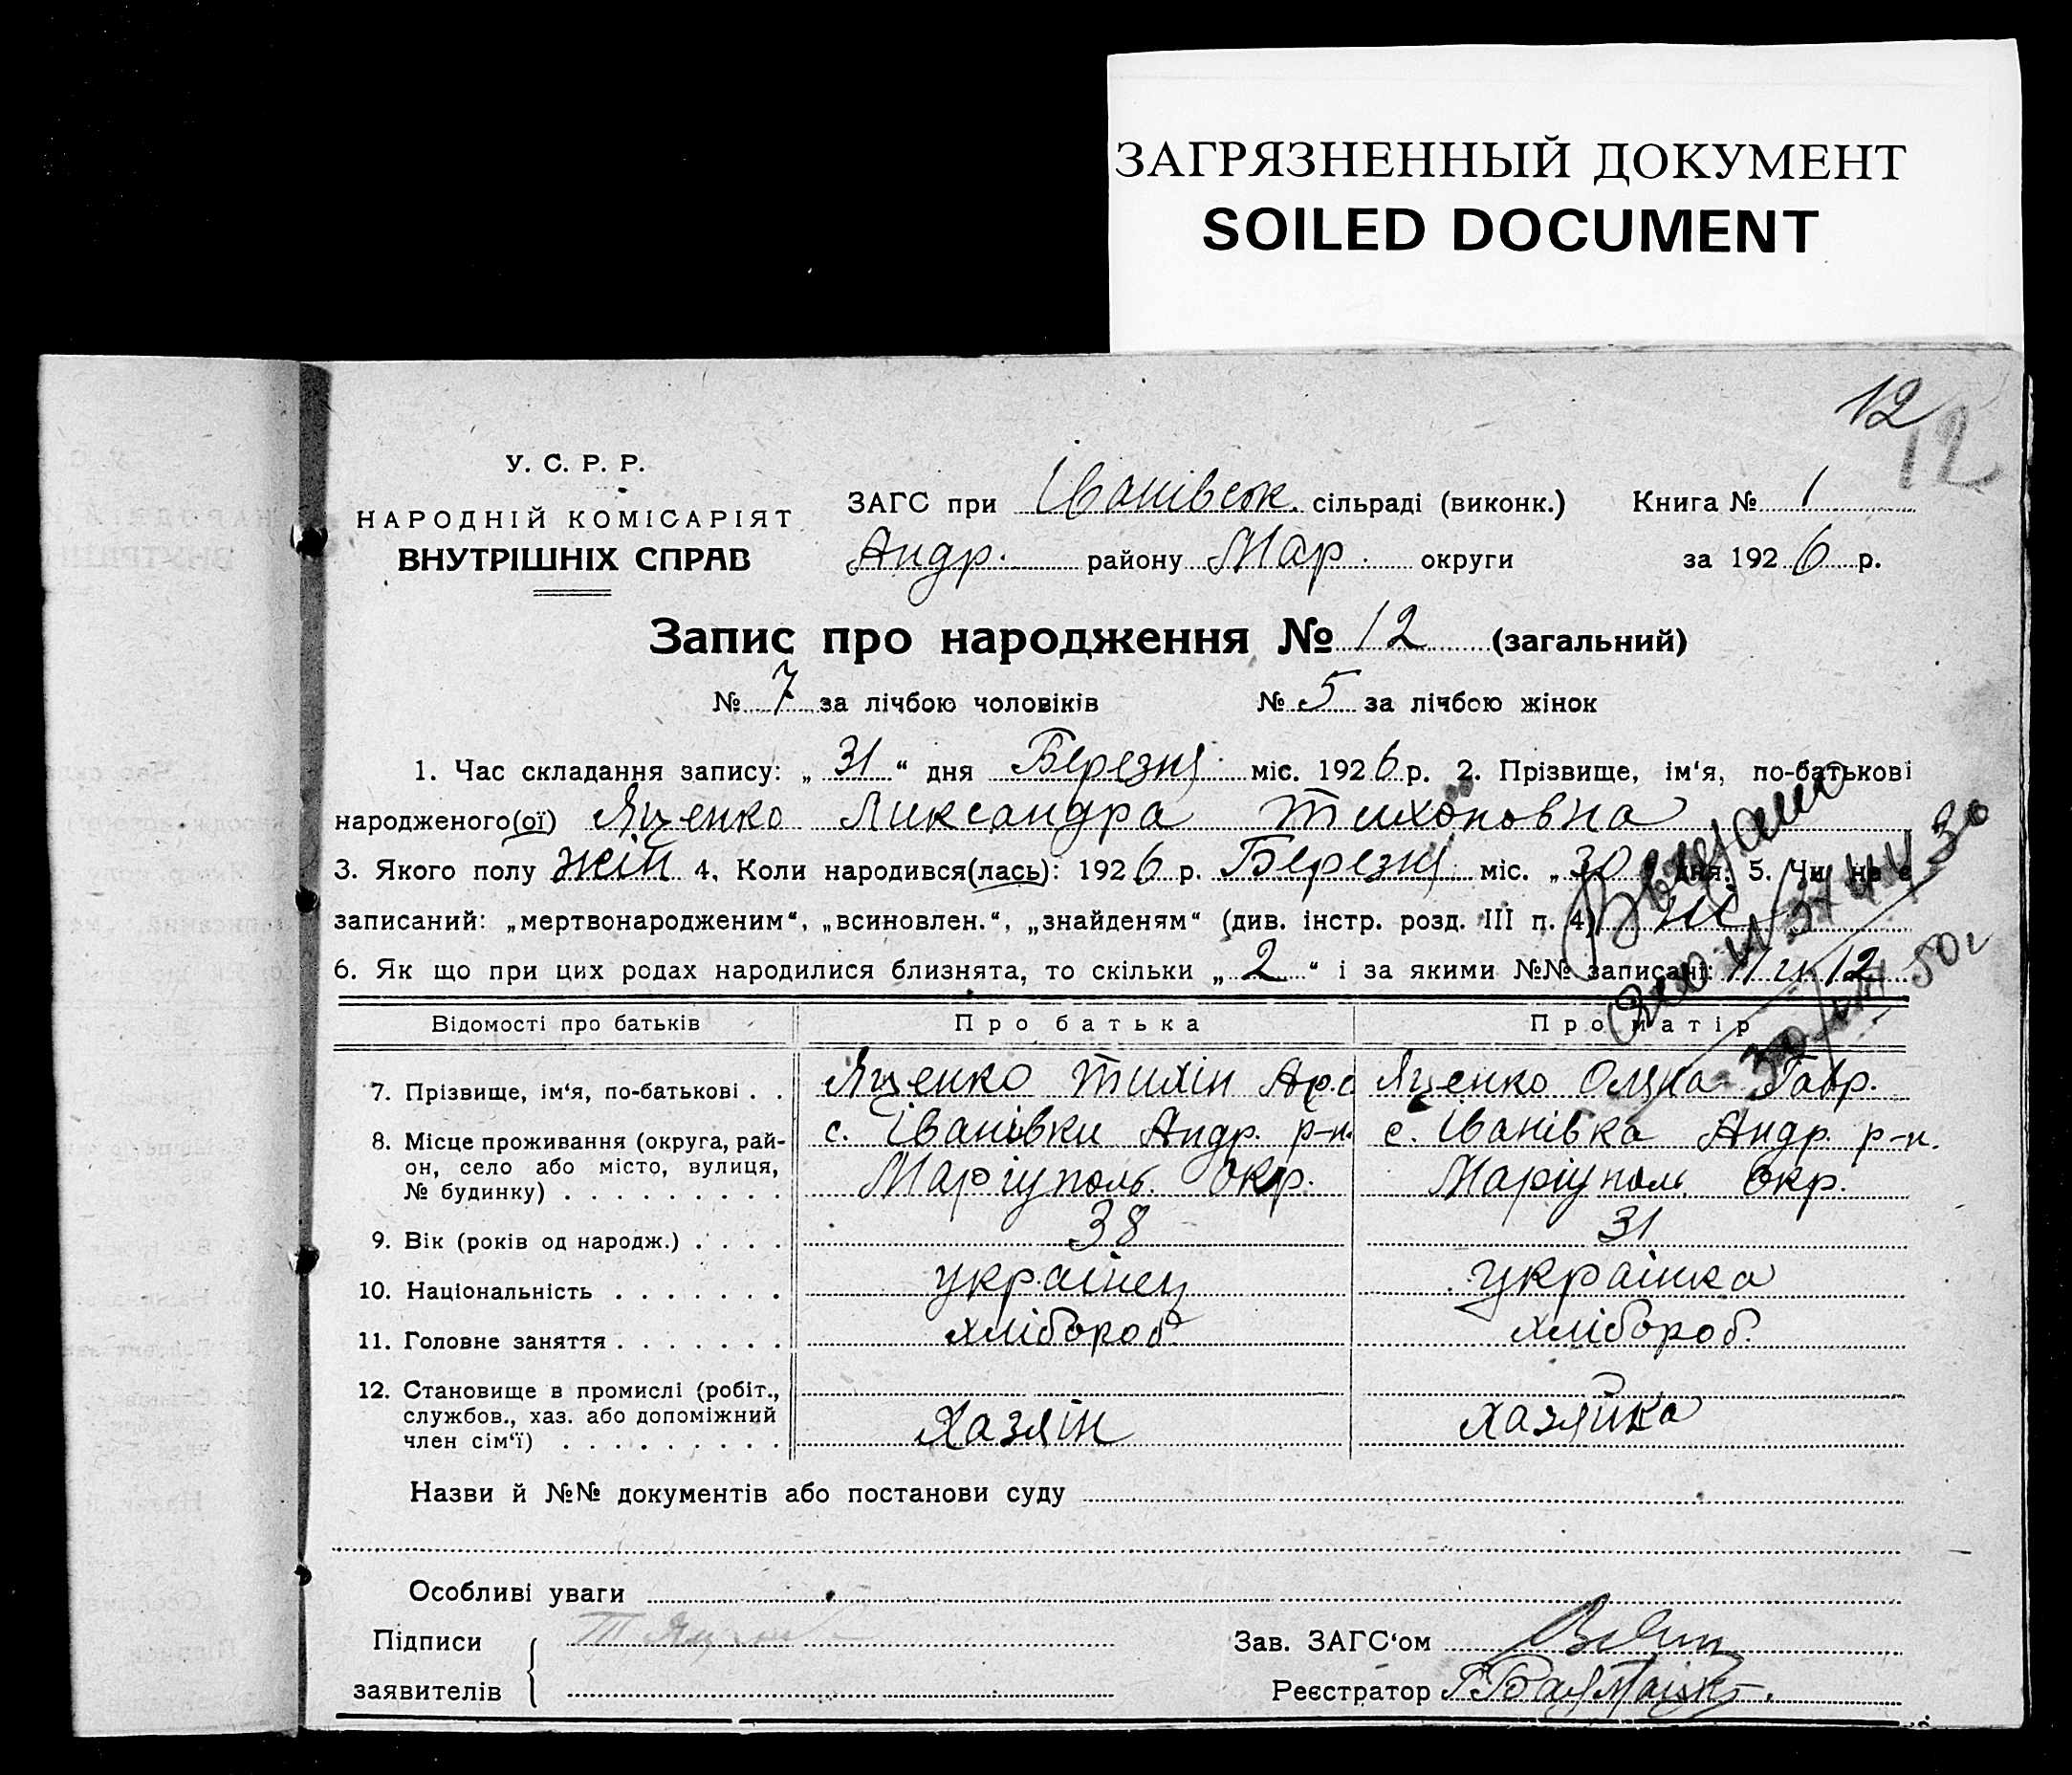 ЗАГРЯЗНЕННЫЙ ДОКУМЕНТ
SOILED DOCUMENT
12
12
У. С. Р. Р.
НАРОДНІЙ КОМІСАРІЯТ
ВНУТРІШНІХ СПРАВ
ЗАГС при Іванівськ. сільраді (виконк.) Книга № 1
Андр. району Мар. округи за 1926 р.
Запис про народження № 12 (загальний)
№ 7 за лічбою чоловіків № 5 за лічбою жінок
1. Час складання запису: „ 31 “ дня Березня міс. 1926 р. 2. Прізвище, ім‘я, по-батькові
народженого(ої) Яценко Александра Тихоновна
3. Якого полу жін 4. Коли народився(лась): 1926 р. Березня міс. „ 30 дня: 5. Чи не є
записаний: „мертвонародженим“, „всиновлен.“, „знайденям“ (див. інстр. розд. III п. 4) ні
6. Як що при цих родах народилися близнята, то скільки „ 2 “ і за якими №№ записані: 11 и 12
Відомості про батьків Про батька Про матір
7. Прізвище, ім‘я, по-батькові . . Яценко Тихін Яценко Гавр.
8. Місце проживання (округа, рай-
он, село або місто, вулиця,
№ будинку) . . . . . . . . .
с. Іванівки Андр. р-н. с. Іванівка Андр. р-н.
Маріуполь. окр. Маріуполь. окр.
9. Вік (років од народж.) . . . . 38 31
10. Національність . . . . . . . українец українка
11. Головне заняття . . . . . . . хлібороб хлібороб.
12. Становище в промислі (робіт.,
службов., хаз. або допоміжний
член сім‘ї) . . . . . . . . .
Хазяїн Хазяйка
Назви й №№ документів або постанови суду
Особливі уваги
Підписи
заявителів
Зав. ЗАГС‘ом
Реєстратор